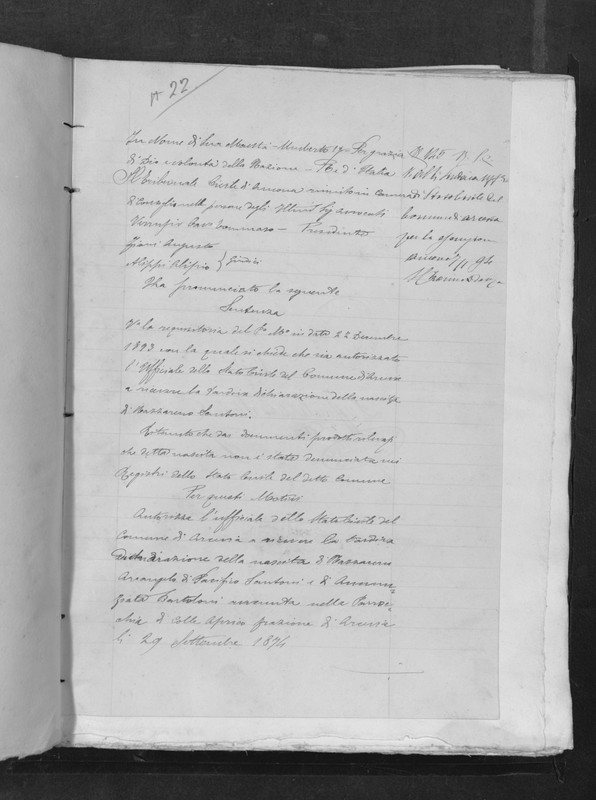 N 22
In Nome di Sua Maestà Umberto 1º Per grazia
di Dio e volontà della Nazione Re d'Italia
Il Tribunale Civile di Ancona riunito in Camera
di Consiglio nelle persone degli Illmi Sigg Avvocati
Cav. Tommaso - Presidente
Ziani Augusto
Aleffi Alipio } Giudici
Ha pronunciato la seguente
Sentenza
Vª la requisitoria del P. Mº in data 22 Dicembre
1893 con la quale si chiede che sia autorizzato
l'Uffiziale dello Stato Civile del Comune di Arcevia
a ricevere la tardiva dichiarazione della nascita
di Nazzareno Santoni.
Ritenuto che dai documenti prodotti rilevasi
che detta nascita non è stata denunciata nei
Registri dello Stato Civile del detto Comune
Per questi Motivi
Autorizza l'ufficiale dello Stato Civile del
Comune di Arcevia a ricevere la tardiva
dichiarazione della nascita di Nazzareno
Arcangelo di Pacifico Santoni e di Annun-
ziata Bartoloni avvenuta nella Parroc-
chia di Colle Aprico frazione di Arcevia
li 29 Settembre 1874
Stato Civile del
Comune di Arcevia
per la
Ancona 94